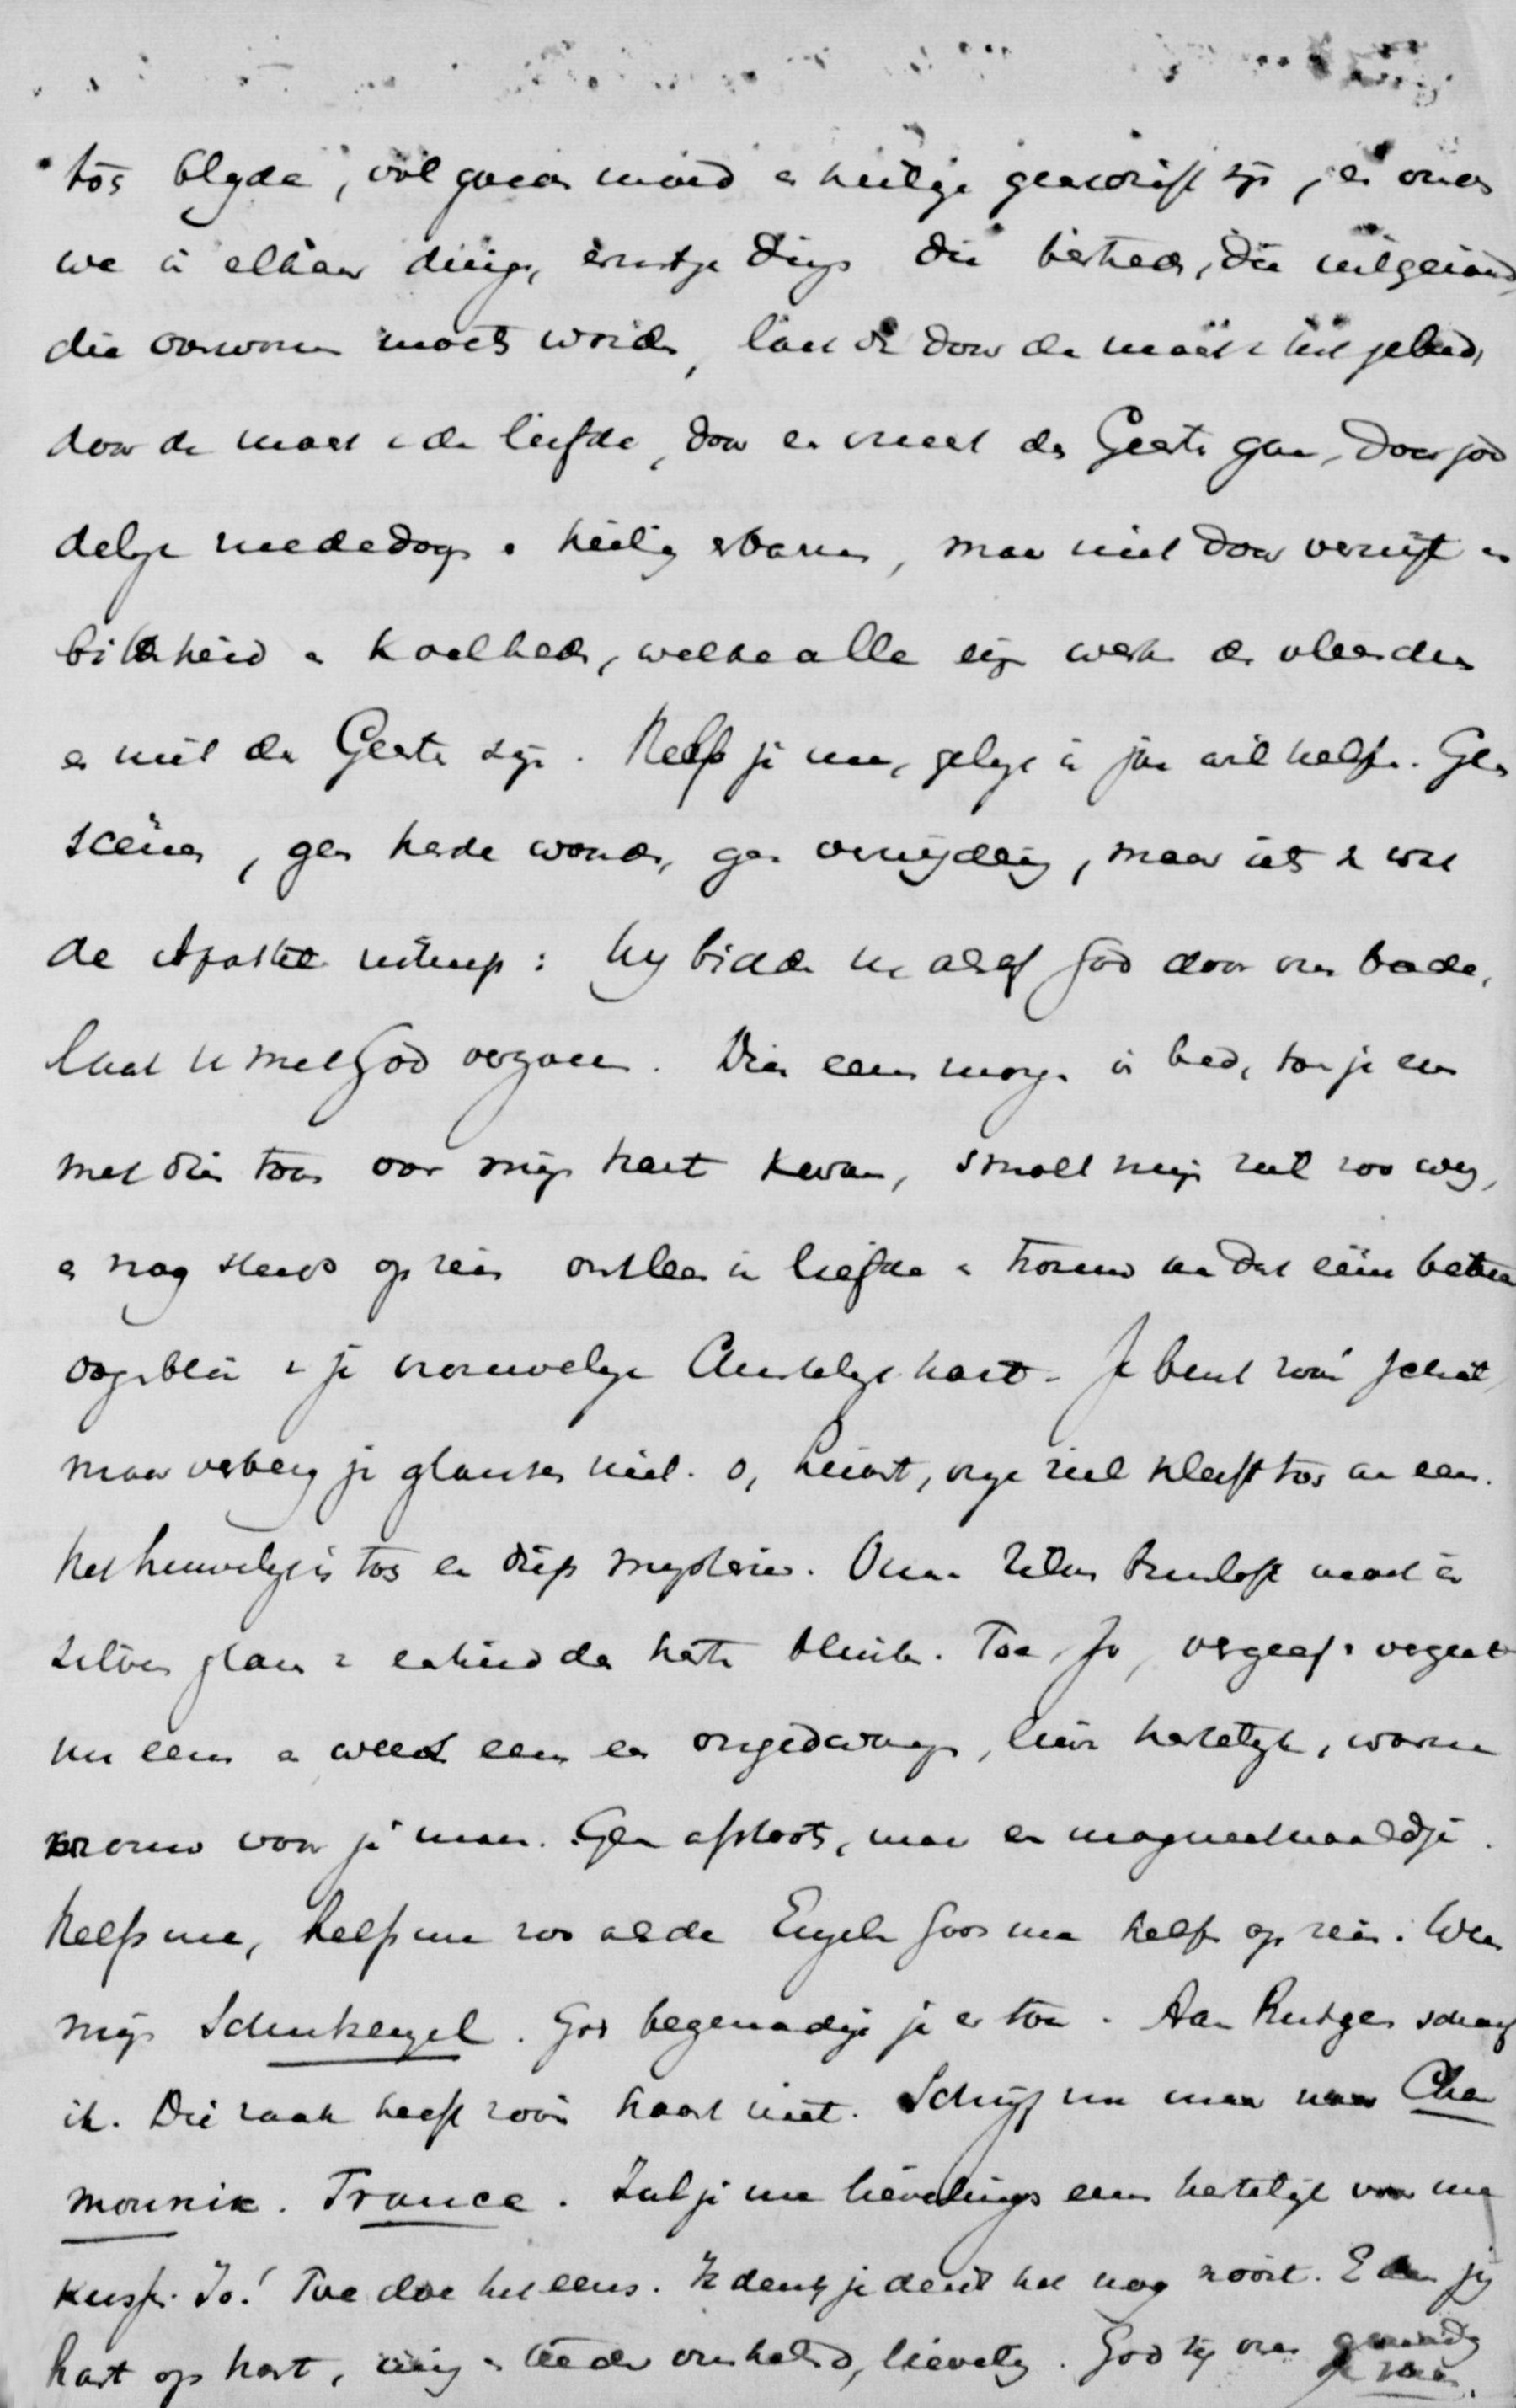 tog blyde, vol goeden moed en heilige geestdrift zijn, en vinden
we in elkaar dingen, ernstige dingen die bestreden, die uitgeroeid,
die overwonnen moeten worden, laat het door de macht v. het gebed,
door de macht v. de liefde, door de macht des Geestes gaan, door god
delijk mededogen en heilig erbarmen, maar niet door vernijf en
bitsheid en koelheden, welke alle zijn werken des vleesches
en niet des Geestes zijn. Help je me, gelijk ik jou wil helpen. Geen
scènes, geen harde woorden, geen vermijding, maar iets v. wat
de Apostel uitriep: Wij bidden u alsof God door ons bade,
laat u met God verzoenen. Dien eenen morgen in bed, toen je even
met dien toon over mijn hart kwam, smolt mijn ziel zoo weg,
en nog steeds op reis ontsteek ik liefde en trouw aan dat ééne
oogenblik v. je vrouwelijk Christelijk hart. Je bent zoo'n schat,
maar verberg je glansen niet. O, hart, onze ziel kleeft toch aan een.
Het huwelijk is toch een diep mysterie. Onze zilveren bruiloft moet in
zilveren glans v. eenheid des harten blinken. Toe, Jo, vergeef en vergeet
nu eens en weest eens een ongedwongen, lieve hartelijke, warme
vrouw voor je man. Geen afstoot, maar een magneetnaaldje.
Help me, help me zoo als de Engelen Gods me helpen op reis. Wees
mijn Schutsengel. God begenadige je er toe. Aan Rutgers schreef
ik. Die zaak heeft zoo'n haast niet. Schrijf nu maar naar Cha
mounix. France. Zul je me lieveling eens hartelijk voor me
kussen. Jo! Toe doe het eens. Ik denk je deedt het nog nooit. En dan jij
hart op hart, innig en teeder omhelsd, lieveling. God zij ons genadig